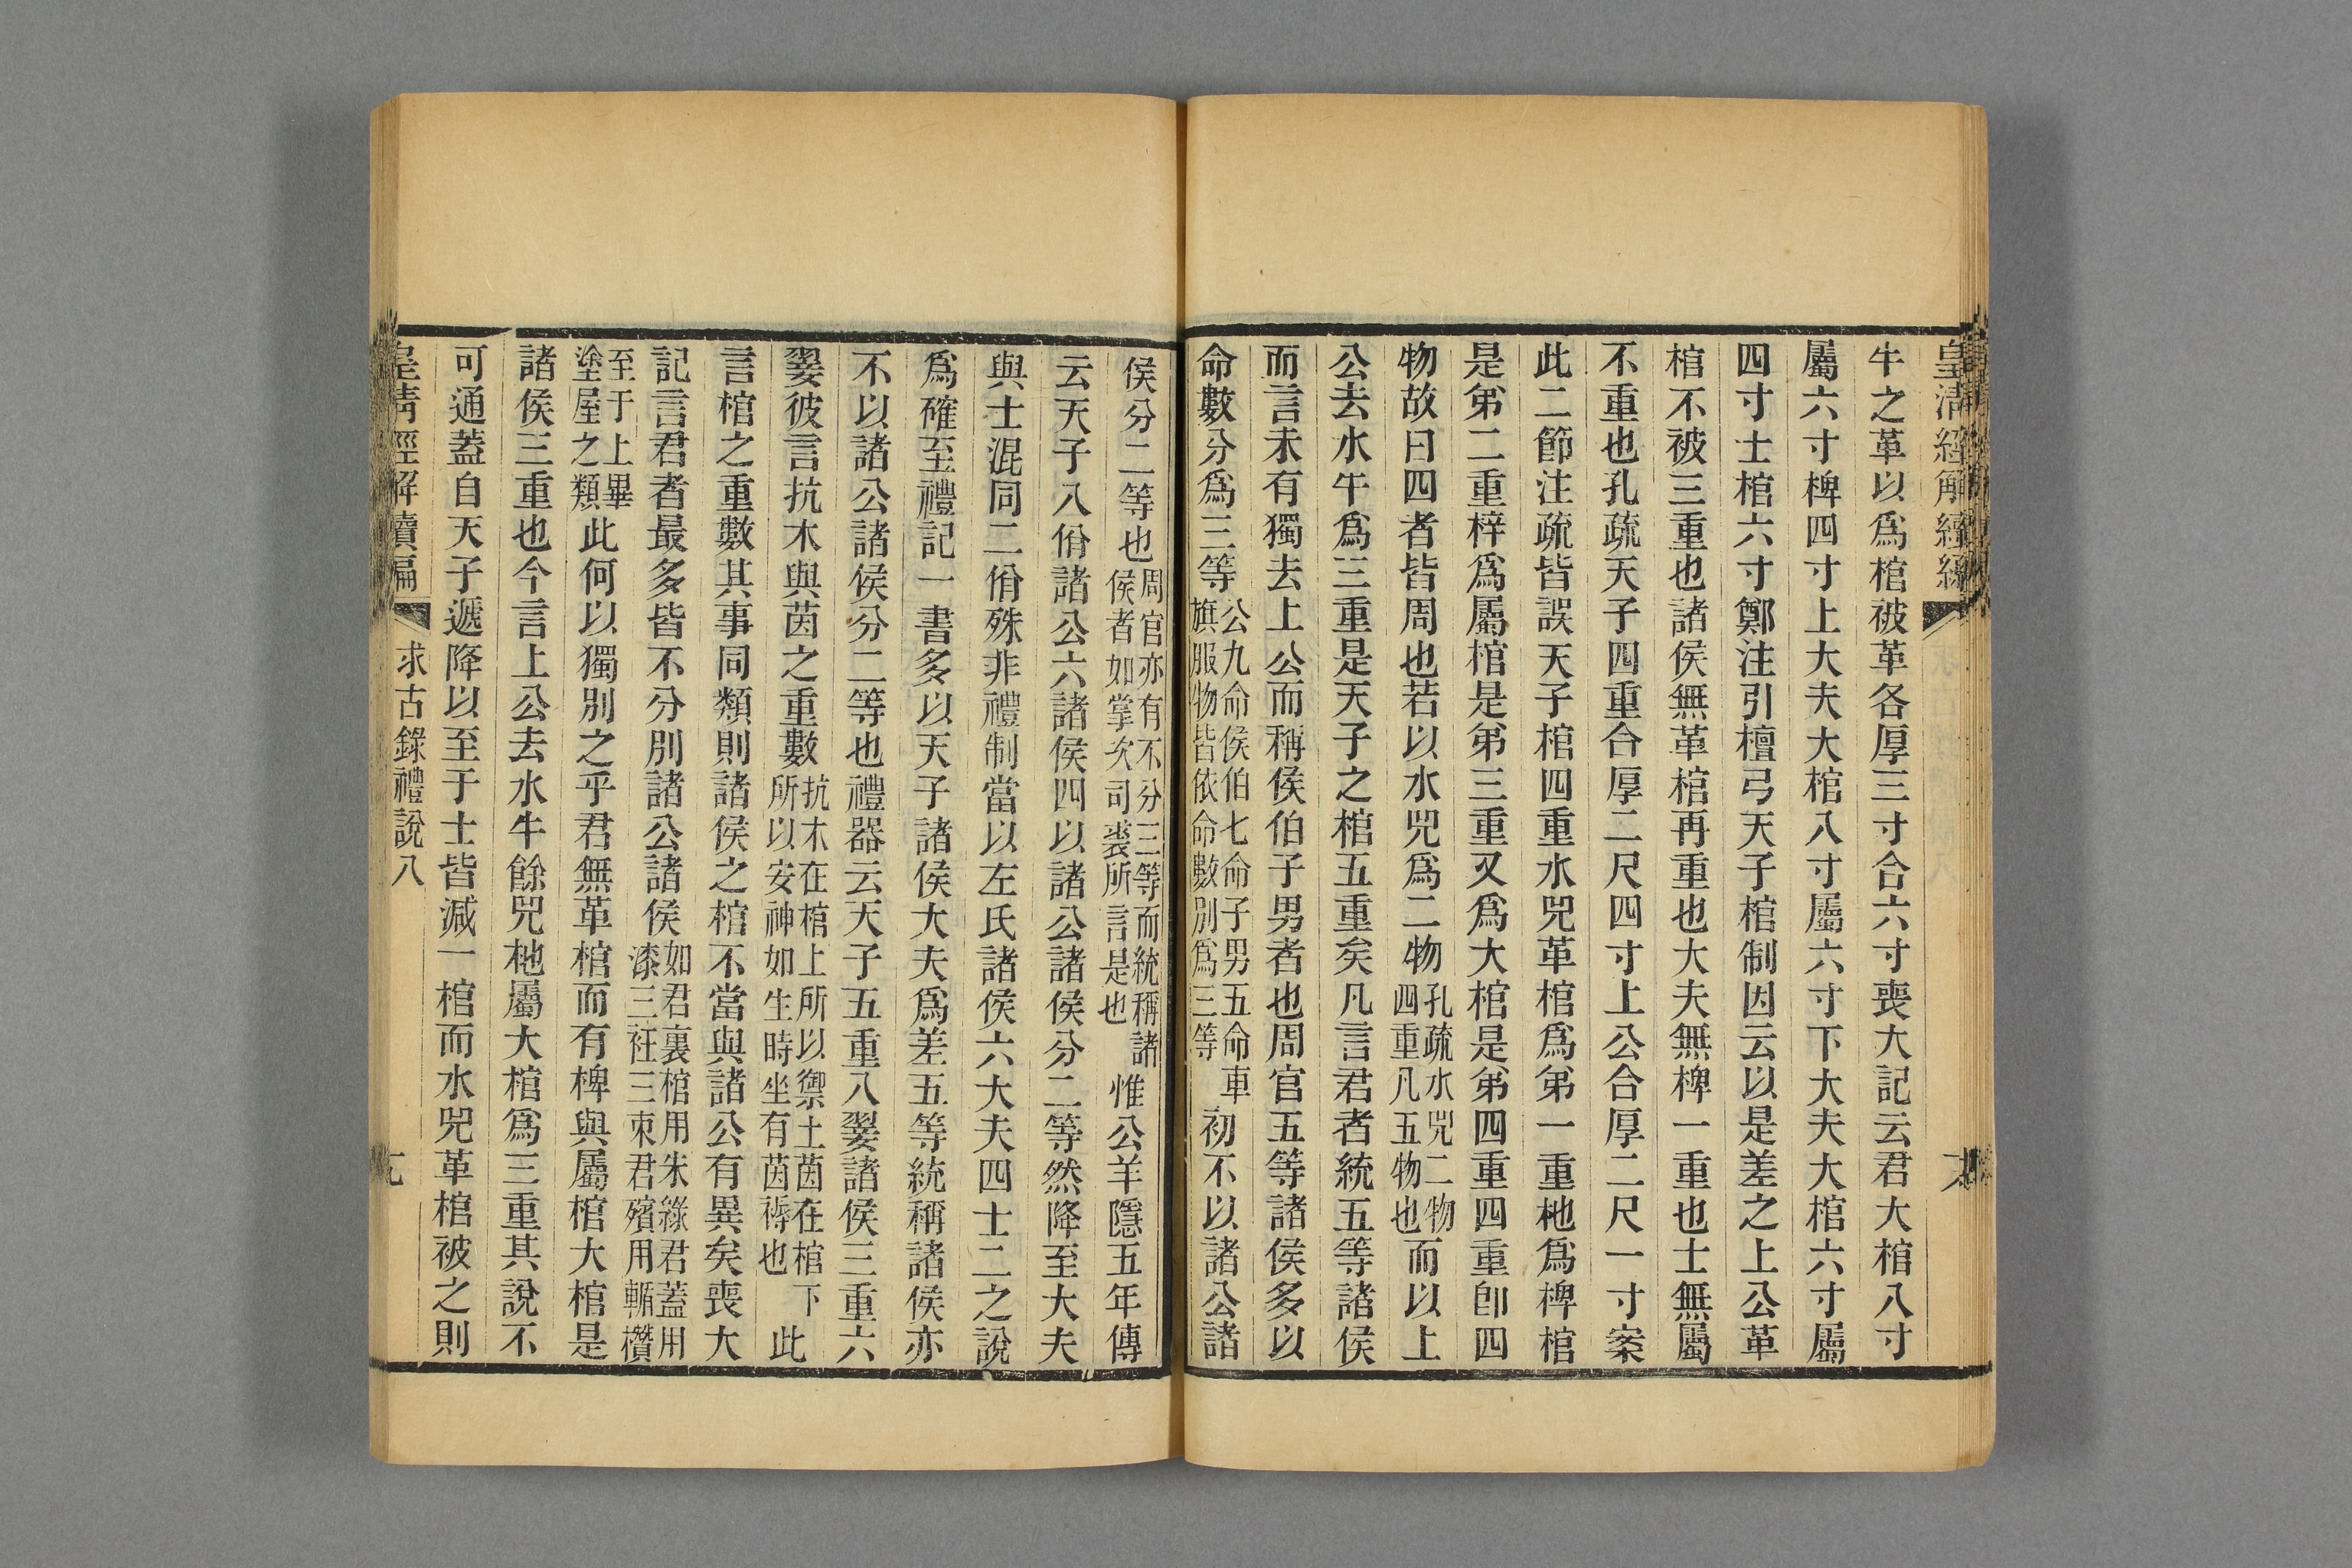 皇清經解續編
牛之革以爲棺被革各厚三寸合六寸喪大記云君大棺八寸
屬六寸椑四寸上大夫大棺八寸屬六寸下大夫大棺六寸屬
四寸士棺六寸鄭注引檀弓天子棺制因云以是差之上公革
棺不被三重也諸侯無革棺再重也大夫無椑一重也士無屬
不重也孔疏天子四重合厚二尺四寸上公合厚二尺一寸案
此二節注疏皆誤天子棺四重水兕革棺爲弟一重杝爲椑棺
是弟二重梓爲屬棺是弟三重又爲大棺是弟四重四重卽四
物故曰四者皆周也若以水兕爲二物
孔疏水兕二物
四重凡五物也
而以上
公去水牛爲三重是天子之棺五重矣凡言君者統五等諸侯
而言未有獨去上公而稱侯伯子男者也周官五等諸侯多以
命數分爲三等
公九命侯伯七命子男五命車
旗服物皆依命數別爲三等
初不以諸公諸
侯分二等也
周官亦有不分三等而統稱諸
侯者如掌次司裘所言是也
惟公羊隱五年傳
云天子八佾諸公六諸侯四以諸公諸侯分二等然降至大夫
與士混同二佾殊非禮制當以左氏諸侯六大夫四士二之說
爲確至禮記一書多以天子諸侯大夫爲差五等統稱諸侯亦
不以諸公諸侯分二等也禮器云天子五重八翣諸侯三重六
翣彼言抗木與茵之重數
抗木在棺上所以禦土茵在棺下
所以安神如生時坐有茵褥也
此
言棺之重數其事同類則諸侯之棺不當與諸公有異矣喪大
記言君者最多皆不分別諸公諸侯
如君裏棺用朱綠君蓋用
漆三衽三束君殯用輴欑
至于上畢
塗屋之類
此何以獨別之乎君無革棺而有椑與屬棺大棺是
諸侯三重也今言上公去水牛餘兕杝屬大棺爲三重其說不
可通蓋自天子遞降以至于士皆減一棺而水兕革棺被之則
皇清經解續編
求古錄禮說八